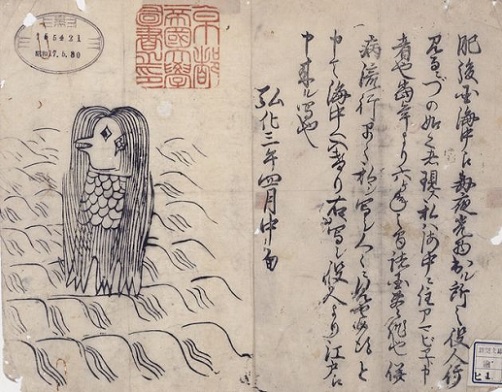 肥後国海中江毎夜光物出ル所之役人行
見るニづの如く者現ス私ハ海中ニ住アマビヱト申
者也当年より六ヶ年之間諸国豊作也併
病流行早々私ヲ写シ人々ニ見セ候得と
申て海中へ入けり右ハ写シ役人より江戸江
申来ル写也
弘化三年四月中旬
京都
帝國大學
圖書之印
165421